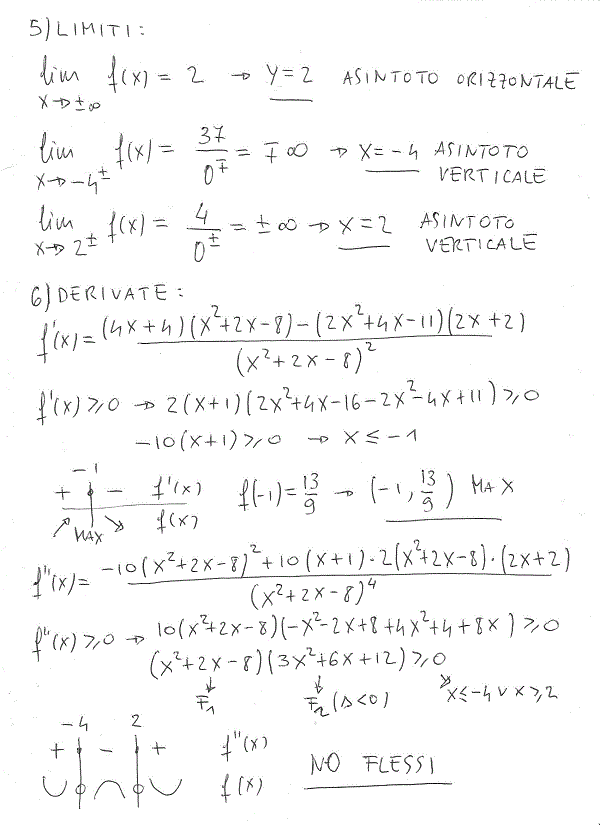 5) LIMITI:
lim x→±∞ f(x) = 2 → y=2 ASINTOTO ORIZZONTALE
lim x→-4± f(x) = 37/0∓ = ∓∞ → x=-4 ASINTOTO VERTICALE
lim x→2± f(x) = 4/0± = ±∞ → x=2 ASINTOTO VERTICALE
6) DERIVATE:
f'(x) = (4x+4)(x²+2x-8)-(2x²+4x-11)(2x+2) / (x²+2x-8)²
f'(x) ≥ 0 → 2(x+1)(2x²+4x-16-2x²-4x+11) ≥ 0
-10(x+1) ≥ 0 → x ≤ -1
-1
+ - f'(x) f(-1) = 13/9 → (-1, 13/9) MAX
↗ MAX ↘ f(x)
f''(x) = -10(x²+2x-8)²+10(x+1)·2(x²+2x-8)·(2x+2) / (x²+2x-8)⁴
f''(x) ≥ 0 → 10(x²+2x-8)(-x²-2x+8+4x²+4+8x) ≥ 0
(x²+2x-8)(3x²+6x+12) ≥ 0
↓ F₁ ↓ F₂ (Δ<0) ↘ x≤-4 ∨ x≥2
-4 2
+ - + f''(x)
∪ ∩ ∪ f(x) NO FLESSI